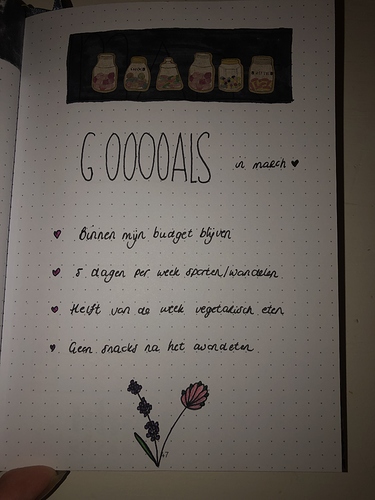 GOOOOALS in march
Binnen mijn budget blijven
5 dagen per week sporten/wandelen
Helft van de week vegetarisch eten
Geen snacks na het avondeten